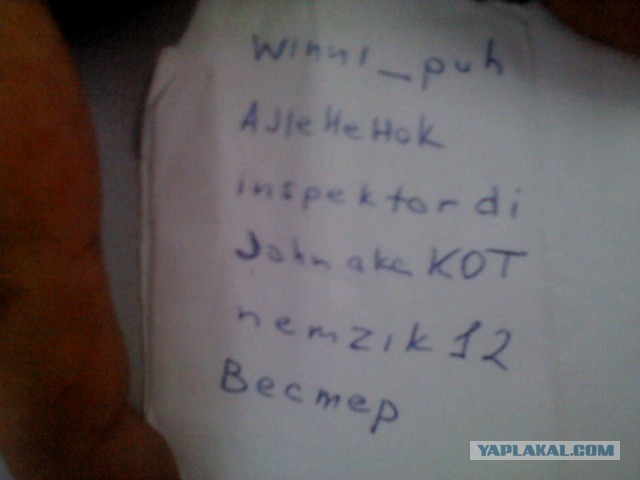 winni_puh
АJleHeHok
inspektor di
John aka KOT
nemzik12
Вестер
YAPLAKAL.COM